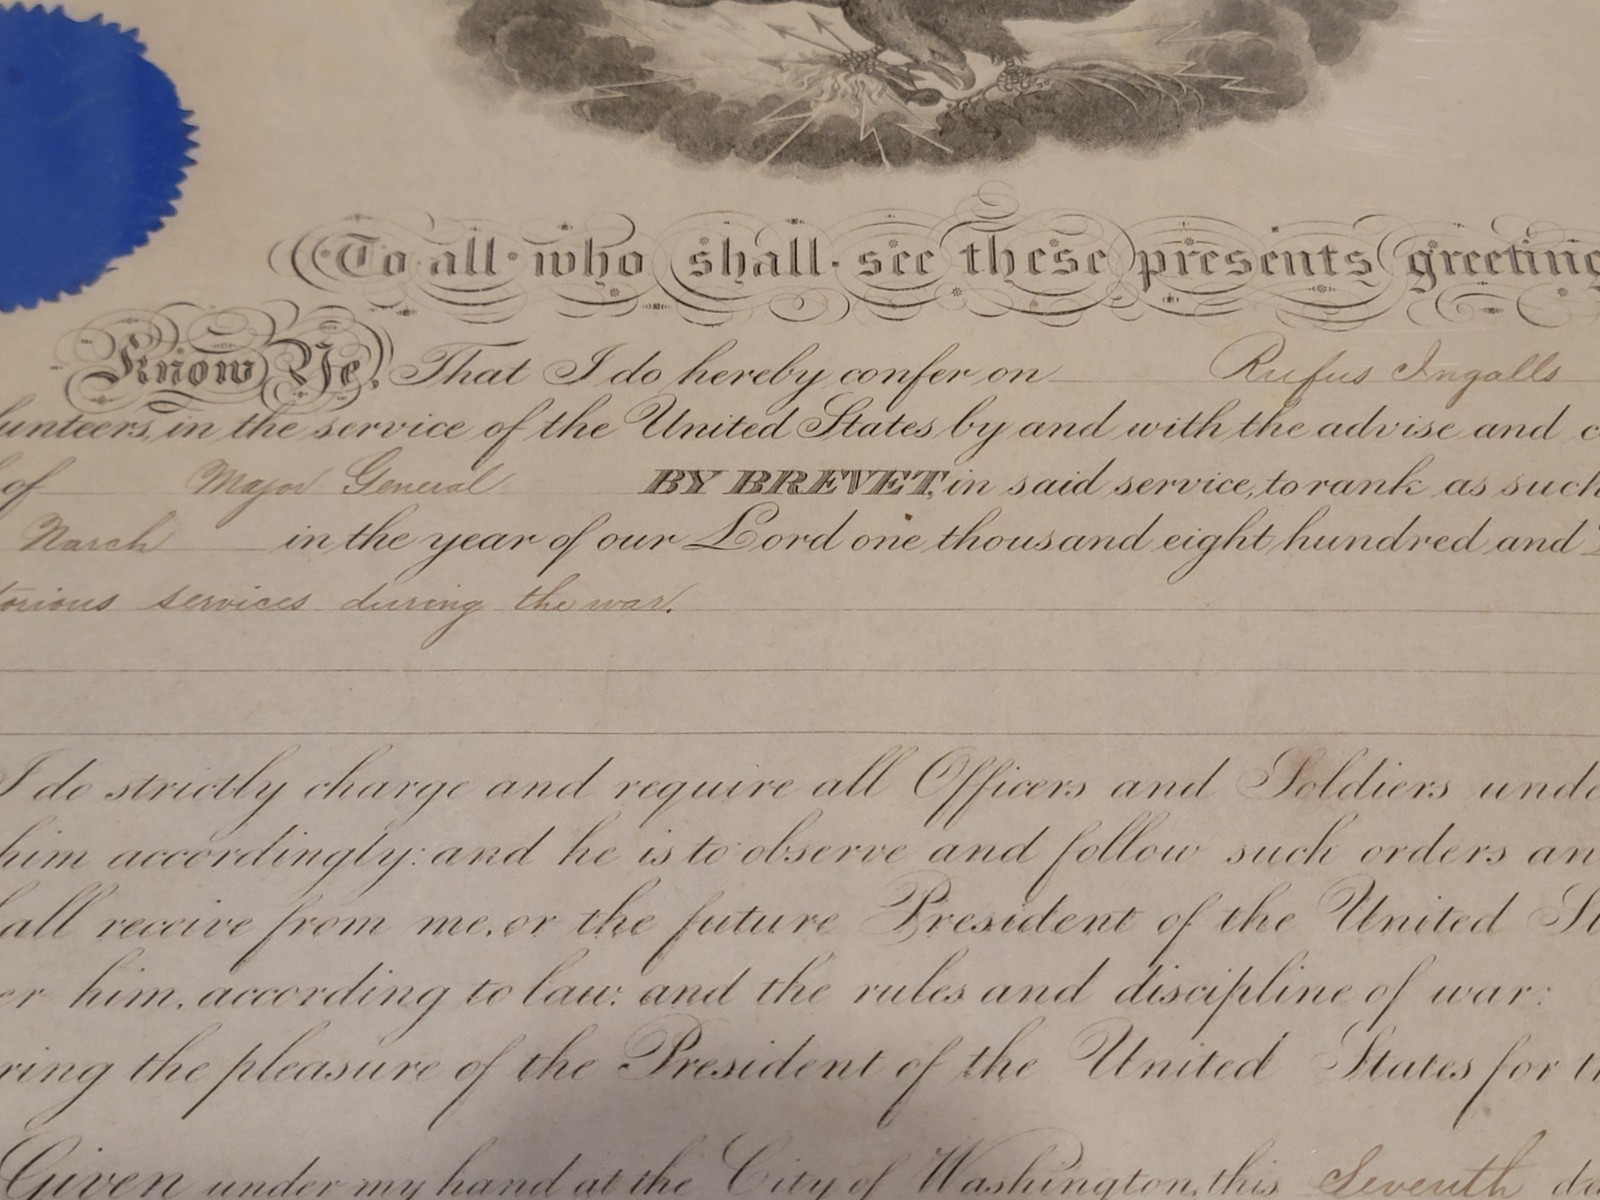 To all who shall see these presents greeting
Know Ye, That I do hereby confer on Rufus Ingalls
unteers, in the service of the United States by and with the advise and c
of Major General BY BREVET, in said service, to rank as such
March in the year of our Lord one thousand eight hundred and
torious services during the war.
I do strictly charge and require all Officers and Soldiers unde
him accordingly: and he is to observe and follow such orders an
all receive from me, or the future President of the United St
er him, according to law: and the rules and discipline of war:
ring the pleasure of the President of the United States for t
Given under my hand at the City of Washington, this Seventh da